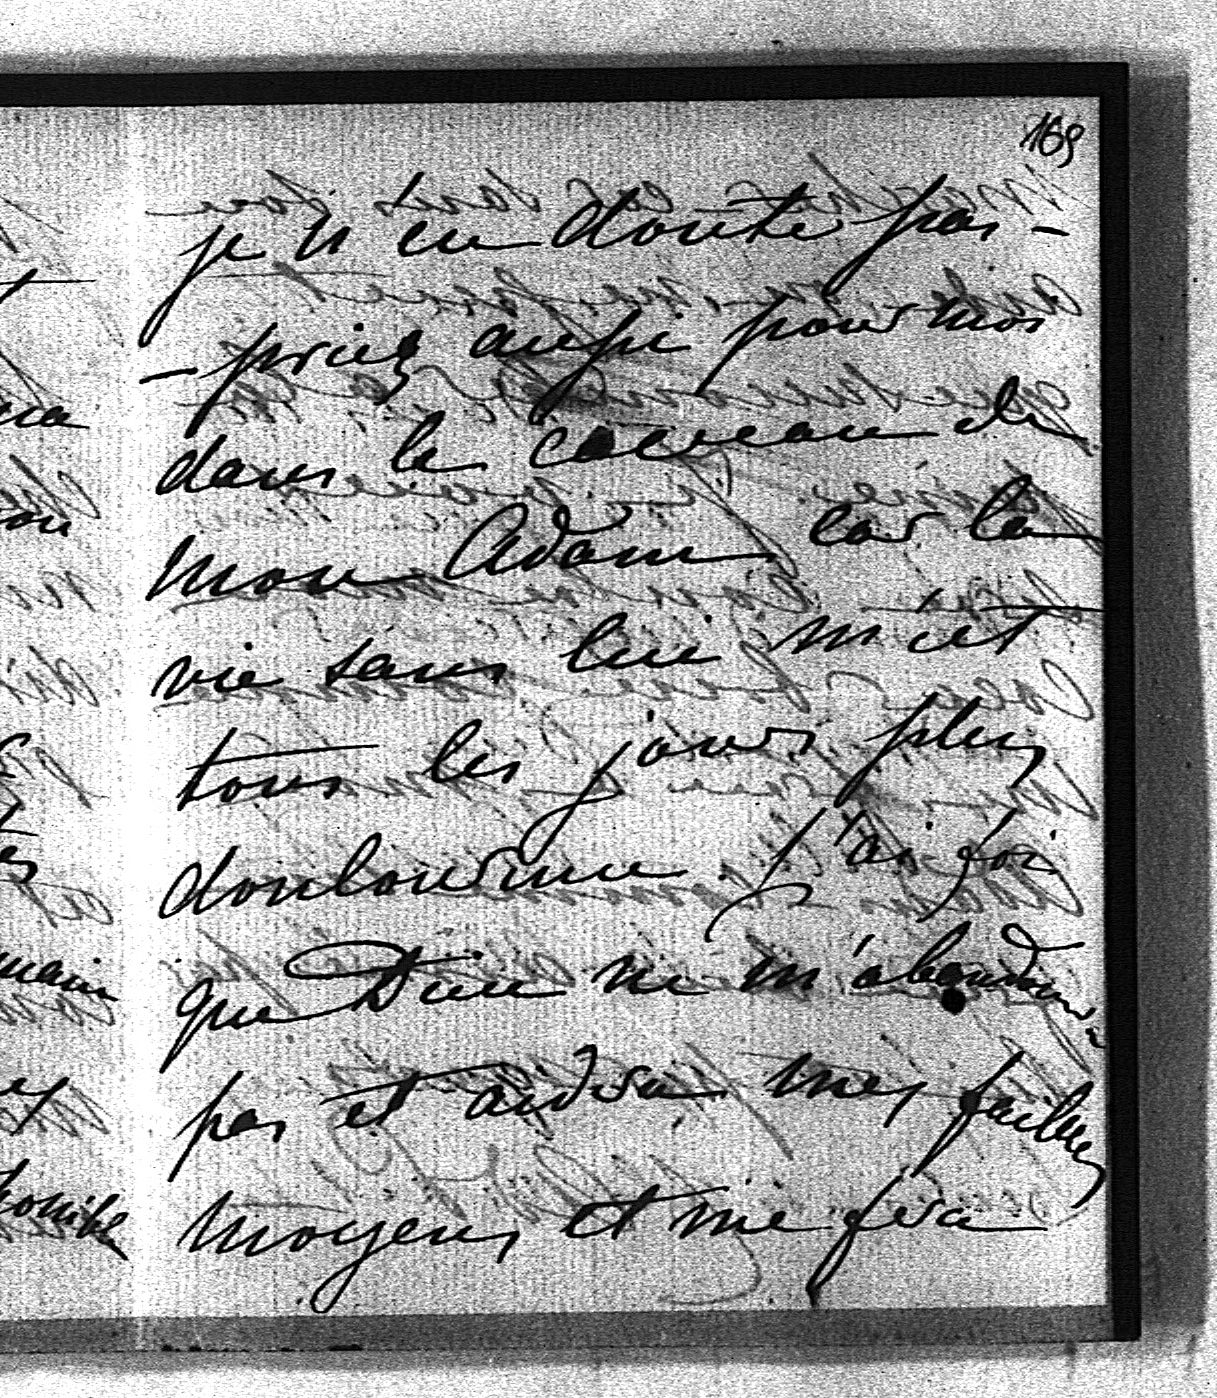 169
je n'en doute pas -
- priez aussi pour moi
dans le caveau de
mon Adam car la
vie sans lui m'est
tous les jours plus
douloureuse. J'ai foi
que Dieu ne m'abandonnera
pas et aidera mes faibles
moyens et me fera